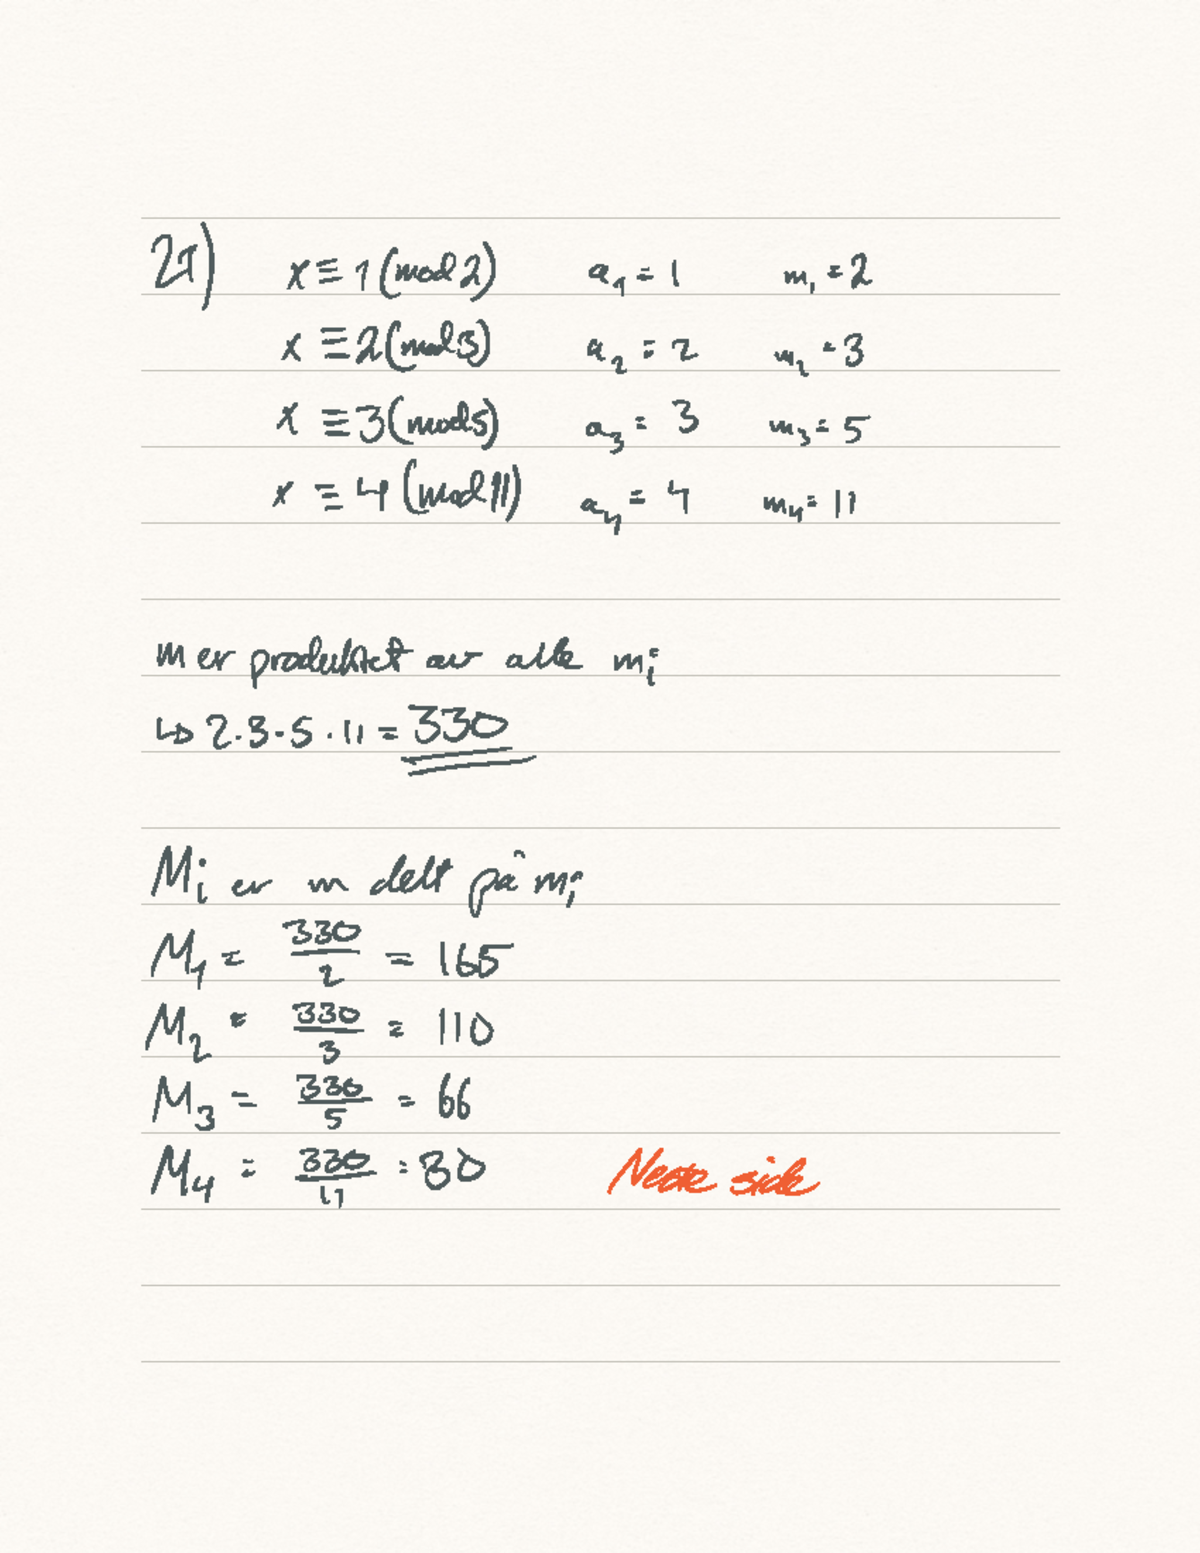 21) x ≡ 1 (mod 2) a₁ = 1 m₁ = 2
x ≡ 2 (mod 3) a₂ = 2 m₂ = 3
x ≡ 3 (mod 5) a₃ = 3 m₃ = 5
x ≡ 4 (mod 11) a₄ = 4 m₄ = 11
m er produktet av alle mᵢ
↳ 2·3·5·11 = 330
Mᵢ er m delt på mᵢ
M₁ = 330/2 = 165
M₂ = 330/3 = 110
M₃ = 330/5 = 66
M₄ = 330/11 = 30
Neste side